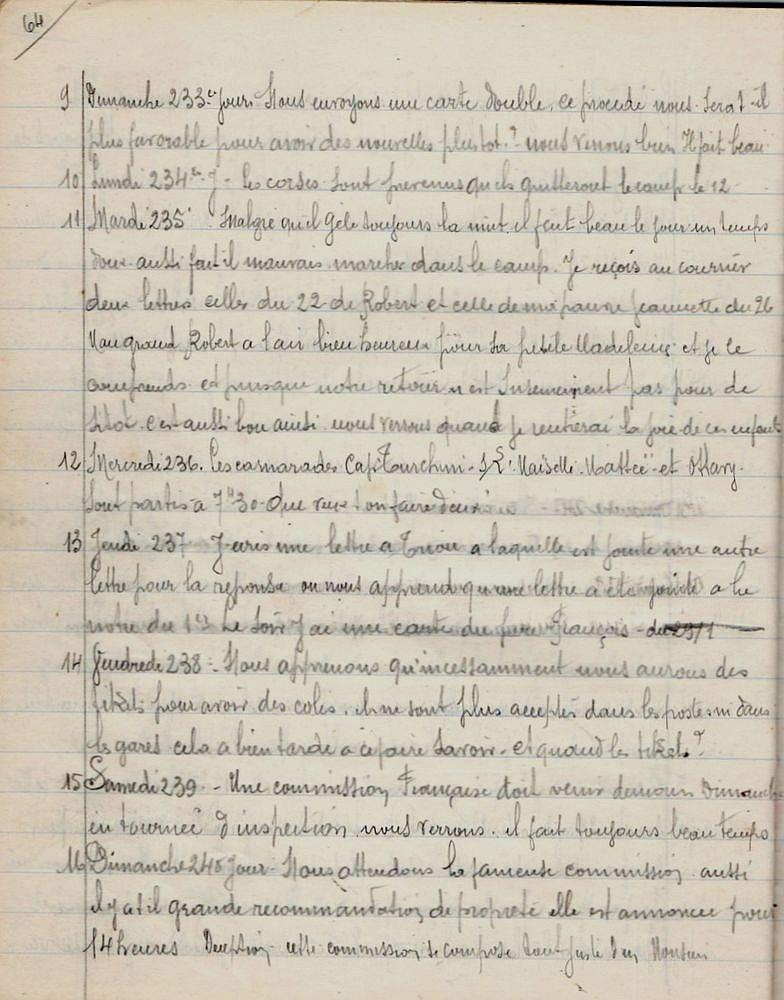 64
9 Dimanche 233e jours Nous envoyons une carte double, ce procédé nous serat-il
plus favorable pour avoir des nouvelles plustot? nous verrons bien Il fait beau
10 Lundi 234e J - Les corses sont prevenus qu'ils quitteront le camp le 12
11 Mardi 235 Malgré qu'il gèle toujours la nuit il fait beau le jour un temps
doux aussi fait il mauvais marcher dans le camp. Je reçois au courrier
deux lettres celles du 22 de Robert et celle de ma pauvre Jeannette du 26
Mon grand Robert a l'air bien heureux pour sa petite Madeleine et je le
comprends et puisque notre retour n'est surement pas pour de
sitot c'est aussi bon ainsi nous verrons quand je rentrerai la joie de ces enfants
12 Mercredi 236. Les camarades Cap. Tourchini - Maiselli Mattei et Ottavy
sont partis à 7h30. Que veut on faire d'eux
13 Jeudi 237 J'ecris une lettre a a laquelle est jointe une autre
lettre pour la reponse on nous apprend qu'une lettre a été jointe a la
notre du 1er Le soir J'ai une carte du frere François - du 29/1
14 Vendredi 238 - Nous apprenons qu'incessamment nous aurons des
pour avoir des colis. Ils ne sont plus acceptés dans les postes ni dans
les gares cela a bien tardé a ce faire savoir - et quand les
15 Samedi 239 - Une commission Française doit venir demain Dimanche
en tourneé d'inspection nous verrons. il fait toujours beau temps
16 Dimanche 240 Jour - Nous attendons la fameuse commission aussi
il y a t il grande recommandation de propreté elle est annoncée pour
14 heures Deception cette commission se compose tout juste d'un Monsieur